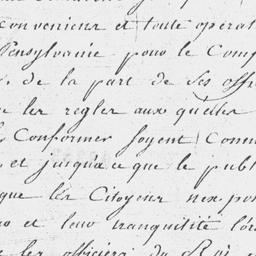 convenient et toute opérat
Pensylvanie pour le Comp
de la part de Ses offi
les regles auxquelles
Conformer soyent Connu
et jusqu'a ce que le publ
que les Citoyens nexpo
et leur tranquilité lors
les officiers du Roi